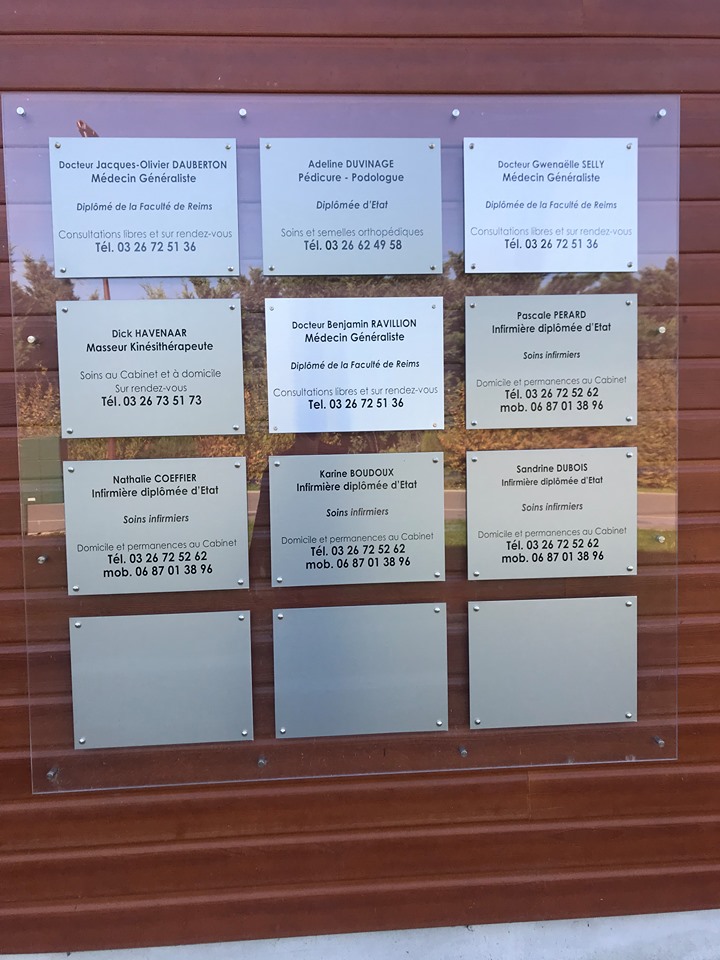 Docteur Jacques-Olivier DAUBERTON
Médecin Généraliste
Diplômé de la Faculté de Reims
Consultations libres et sur rendez-vous
Tél. 03 26 72 51 36
Adeline DUVINAGE
Pédicure - Podologue
Diplômée d'Etat
Soins et semelles orthopédiques
Tél. 03 26 62 49 58
Docteur Gwenaëlle SELLY
Médecin Généraliste
Diplômée de la Faculté de Reims
Consultations libres et sur rendez-vous
Tél. 03 26 72 51 36
Dick HAVENAAR
Masseur Kinésithérapeute
Soins au Cabinet et à domicile
Sur rendez-vous
Tél. 03 26 73 51 73
Docteur Benjamin RAVILLION
Médecin Généraliste
Diplômé de la Faculté de Reims
Consultations libres et sur rendez-vous
Tel. 03 26 72 51 36
Pascale PERARD
Infirmière diplômée d'Etat
Soins infirmiers
Domicile et permanences au Cabinet
Tél. 03 26 72 52 62
mob. 06 87 01 38 96
Nathalie COEFFIER
Infirmière diplômée d'Etat
Soins infirmiers
Domicile et permanences au Cabinet
Tél. 03 26 72 52 62
mob. 06 87 01 38 96
Karine BOUDOUX
Infirmière diplômée d'Etat
Soins infirmiers
Domicile et permanences au Cabinet
Tél. 03 26 72 52 62
mob. 06 87 01 38 96
Sandrine DUBOIS
Infirmière diplômée d'Etat
Soins infirmiers
Domicile et permanences au Cabinet
Tél. 03 26 72 52 62
mob. 06 87 01 38 96